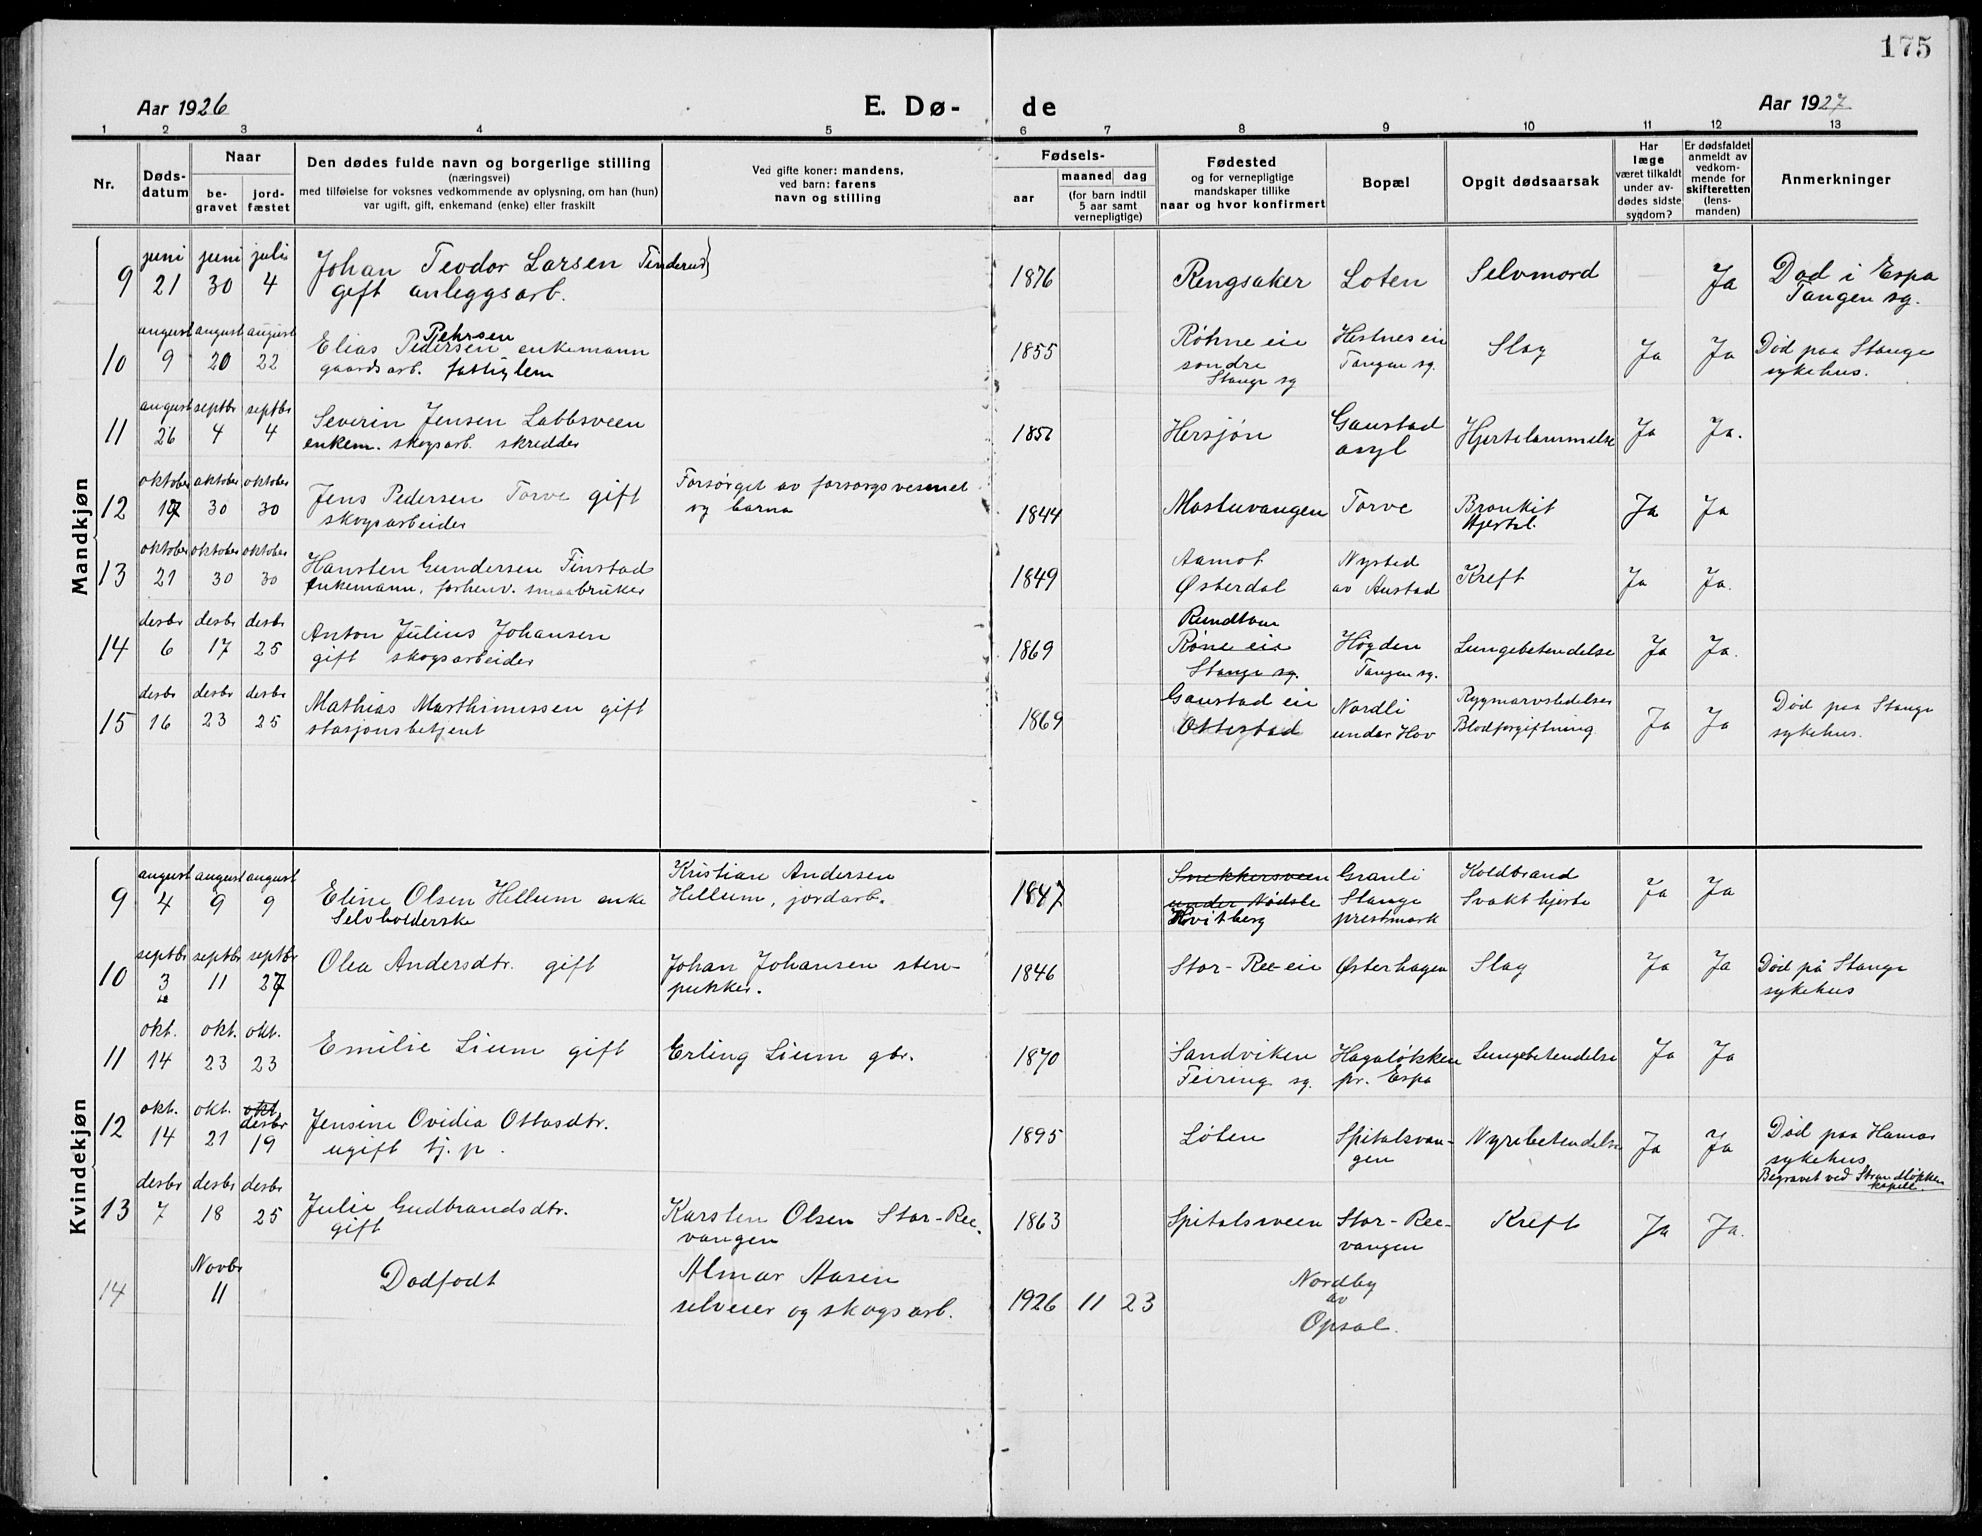 175
Aar 1926
E. Dø-
de
Aar 1927
1 2 3 4 5 6 7 8 9 10 11 12 13
Nr.
Døds-
datum
Naar
be-
gravet
jord-
fæstet
Den dødes fulde navn og borgerlige stilling
(næringsvei)
med tilføielse for voksnes vedkommende av oplysning, om han (hun)
var ugift, gift, enkemand (enke) eller fraskilt
Ved gifte koner: mandens,
ved barn: farens
navn og stilling
Fødsels-
aar
maaned dag
(for barn indtil
5 aar samt
vernepligtige)
Fødested
og for vernepligtige
mandskaper tillike
naar og hvor konfirmert
Bopæl
Opgit dødsaarsak
Har
læge
været tilkaldt
under av-
dødes sidste
sygdom?
Er dødsfaldet
anmeldt av
vedkom-
mende for
skifteretten
(lens-
manden)
Anmerkninger
Mandkjøn
9
juni
21
juni
30
juli
4
Johan Teodor Larsen Tinderud
gift anleggsarb.
1876
Ringsaker
Løten
Selvmord
Ja
Død i Espa
Tangen sg.
10
august
9
august
20
august
22
Pehrsen
Elias Pedersen enkemann
gaardsarb. fattiglem
1855
Røhne eie
søndre
Stange sg
Hestnes eie
Tangen sg.
Slag
Ja
Ja
Død paa Stange
sykehus.
11
august
26
septbr
4
septbr
4
Severin Jensen Labbsveen
enkem. skogsarb. skredder
Hersjøn
Gaustad
asyl
Hjertelammelse
Ja
Ja.
12
oktober
oktober
30
oktober
30
Jens Pedersen Torve gift
skogsarbeider
Forsørget av forsorgsvesenet
og barna
1844
Mostuvangen
Torve
Bronkit
Hjertel.
Ja
Ja
13
oktober
21
oktober
30
oktober
30
Hansten Gundersen Finstad
enkemann, forhenv. smaabruker
1849
Aamot
Østerdal
Nysted
av Austad
Kreft
Ja
Ja.
14
desbr
6
desbr
17
desbr
25
Anton Julius Johansen
gift skogsarbeider
1869
Rundtom
Røne eie
Stange sg.
Høgden
Tangen sg.
Lungebetendelse
Ja
Ja.
15
desbr
16
desbr
23
desbr
25
Mathias Marthinussen gift
stasjonsbetjent
1869
Gaustad eie
Ottestad
Nordli
under Hov
Rygmarvslidelse
Blodforgiftning
Ja
Ja
Død paa Stange
sykehus.
Kvindekjøn
9
august
4
august
9
august
9
Eline Olsen Hellum enke
Selvholderske
Kristian Andersen
Hellum, jordarb.
1847
Snekkersveen
under Nødsle
Hvitberg
Granli
Stange
prestmark
Koldbrand
Svakt hjerte
Ja
Ja
10
septbr
3
septbr
11
septbr
27
Olea Andersdtr. gift
Johan Johansen sten-
pukker.
1846
Stor-Ree eie
Østerhagen
Slag
Ja
Ja
Død på Stange
sykehus
11
okt.
14
okt.
23
okt.
23
Emilie Lium gift
Erling Lium gbr.
1870
Sandviken
Feiring sg.
Hagaløkken
pr. Espa
Lungebetendelse
Ja
Ja
12
okt.
14
okt.
21
okt
desbr
19
Jensine Ovidia Ottosdtr.
ugift tj. p.
1895
Løten
Spitalsvan-
gen
Nyrebetendelse
Ja
Ja
Død paa Hamar
sykehus
Begravet ved Strandløkken
kapell.
13
desbr
7
desbr
18
desbr
25
Julie Gudbrandsdtr.
gift
Karsten Olsen Stor-Ree-
vangen
1863
Spitalsveen
Stor-Ree-
vangen
Kreft
Ja
Ja.
14
Novbr
11
Dødfødt
Almar Aasen
selveier og skogsarb.
1926 11 23
Nordby
av
Opsal.